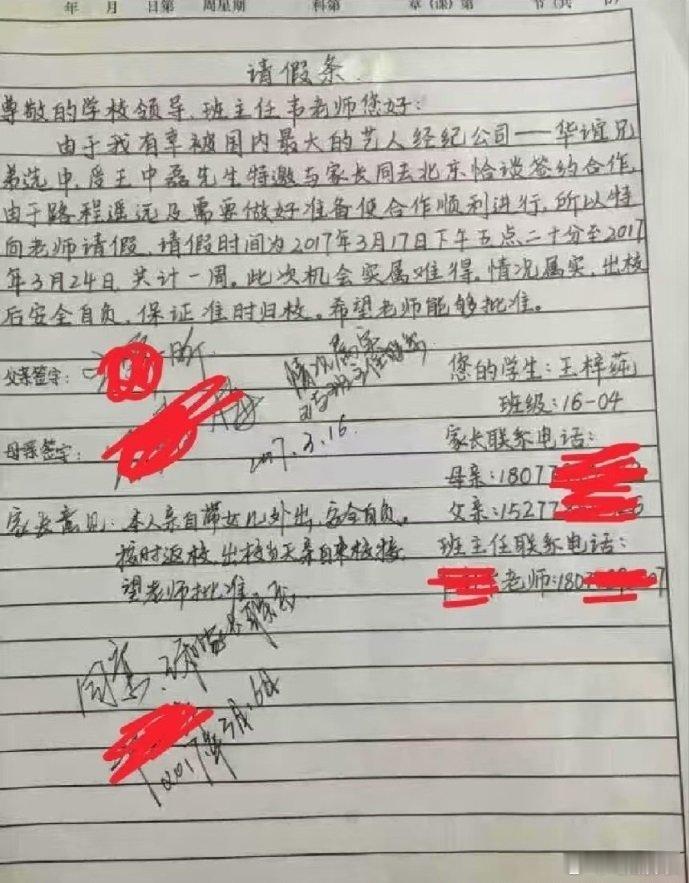 年 月 日第 周星期 科第 章(课)第 节(共 节)
请假条
尊敬的学校领导、班主任韦老师您好:
由于我有幸被国内最大的艺人经纪公司——华谊兄
弟选中,受王中磊先生特邀与家长同去北京恰谈签约合作,
由于路程遥远及需要做好准备使合作顺利进行,所以特
向老师请假,请假时间为2017年3月17日下午五点二十分至2017
年3月24日,共计一周。此次机会实属难得,情况属实,出校
后安全自负,保证准时归校。希望老师能够批准。
父亲签字:
情况属实
2017.3.16
母亲签字:
您的学生:王梓莼
班级:16-04
家长联系电话:
母亲:18077
父亲:15277
班主任联系电话:
老师:180
家长意见:本人亲自带女儿外出,安全自负。
按时返校,出校当天亲自来校接
望老师批准
同意.
2017年3月16日